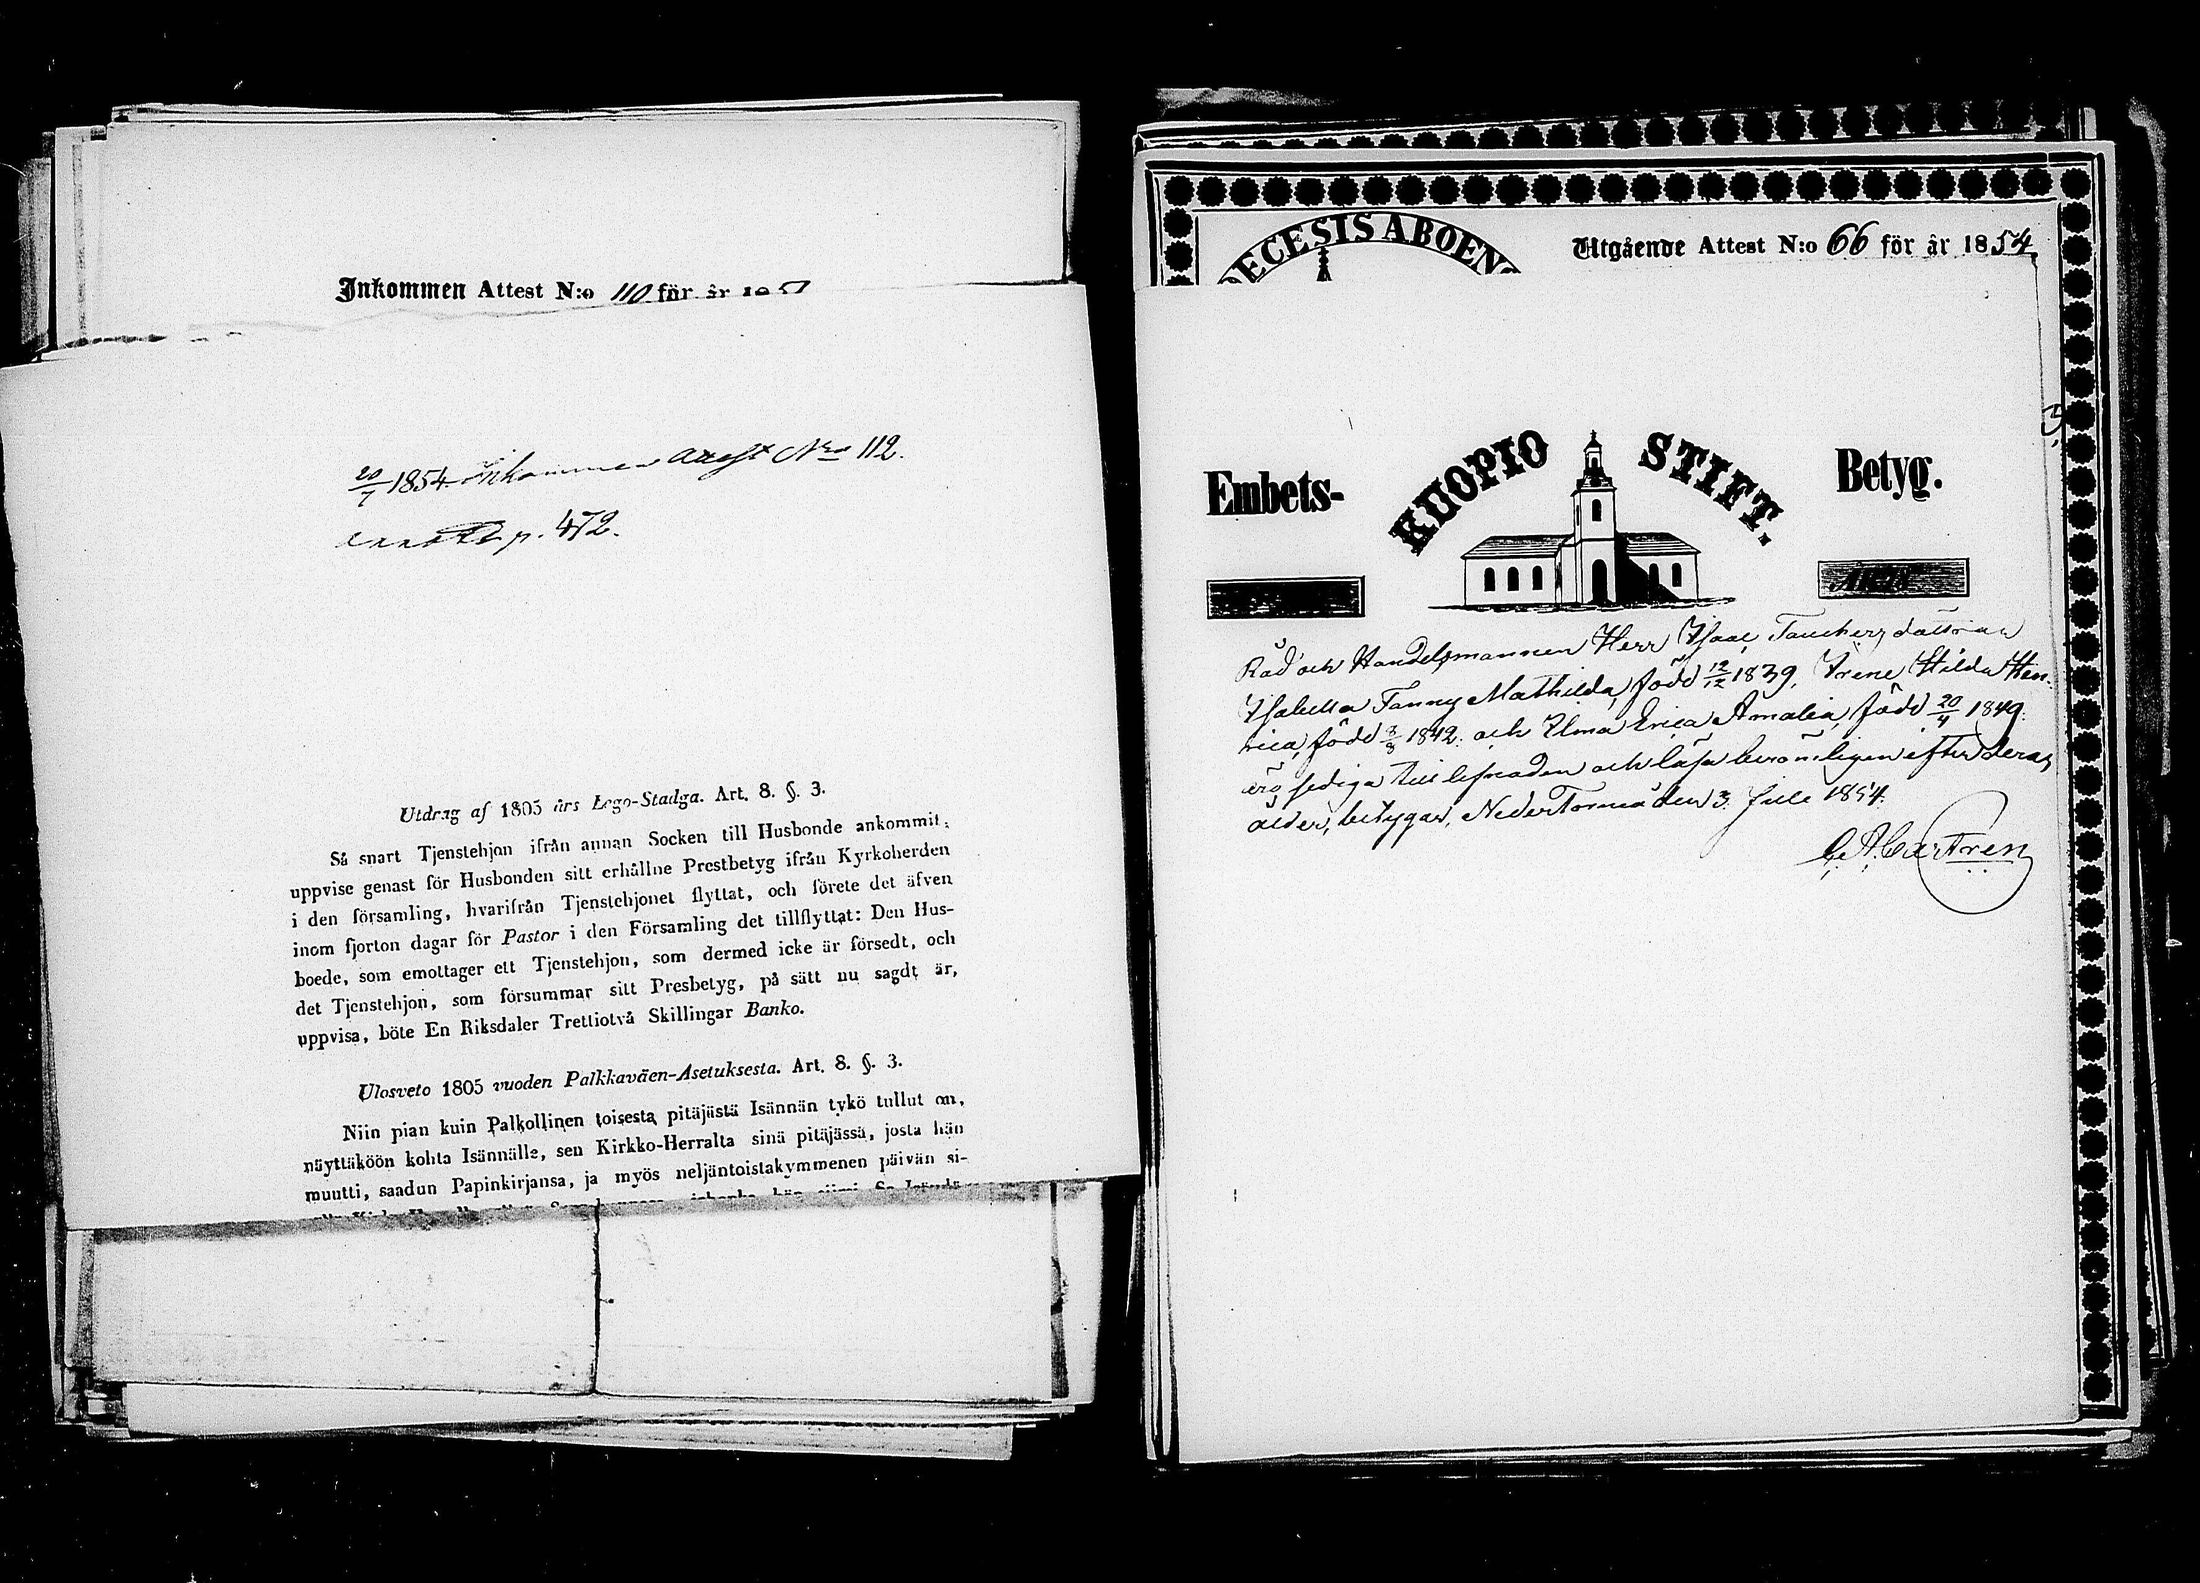 Inkommen Attest N:o 110 för år 185
20/7 1854 Inkommen Attest Nro 112.
p. 472.
Utdrag af 1805 års Lego-Stadga. Art. 8. §. 3.
Så snart Tjenstehjon ifrån annan Socken till Husbonde ankommit,
uppvise genast för Husbonden sitt erhållne Prestbetyg ifrån Kyrkoherden
i den församling, hvarifrån Tjenstehjonet flyttat, och förete det äfven
inom fjorton dagar för Pastor i den Församling det tillflyttat: Den Hus-
boede, som emottager ett Tjenstehjon, som dermed icke är försedt, och
det Tjenstehjon, som försummar sitt Presbetyg, på sätt nu sagdt är,
uppvisa, böte En Riksdaler Trettiotvå Skillingar Banko.
Ulosveto 1805 vuoden Palkkaväen-Asetuksesta. Art. 8. §. 3.
Niin pian kuin Palkollinen toisesta pitäjästä Isännän tykö tullut on,
näyttäköön kohta Isännälle, sen Kirkko-Herralta sinä pitäjässä, josta hän
muutti, saadun Papinkirjansa, ja myös neljäntoistakymmenen päivän si-
DECESIS ABOENS
Utgående Attest N:o 66 för år 1854
Embets- KUOPIO STIFT. Betyg.
Råd och Handelsmannen Herr Isaac Tauchers döttrar
Isabella Fanny Mathilda, född 12/12 1839, Irene Hilda Hen-
rica, född 8/8 1842. och Elma Erica Amalia, född 20/4 1849.
äro sediga till lefnaden och läsa berömligen efter deras
ålder, betygar, NederTorneå den 3 Juli 1854.
C. A. Castren